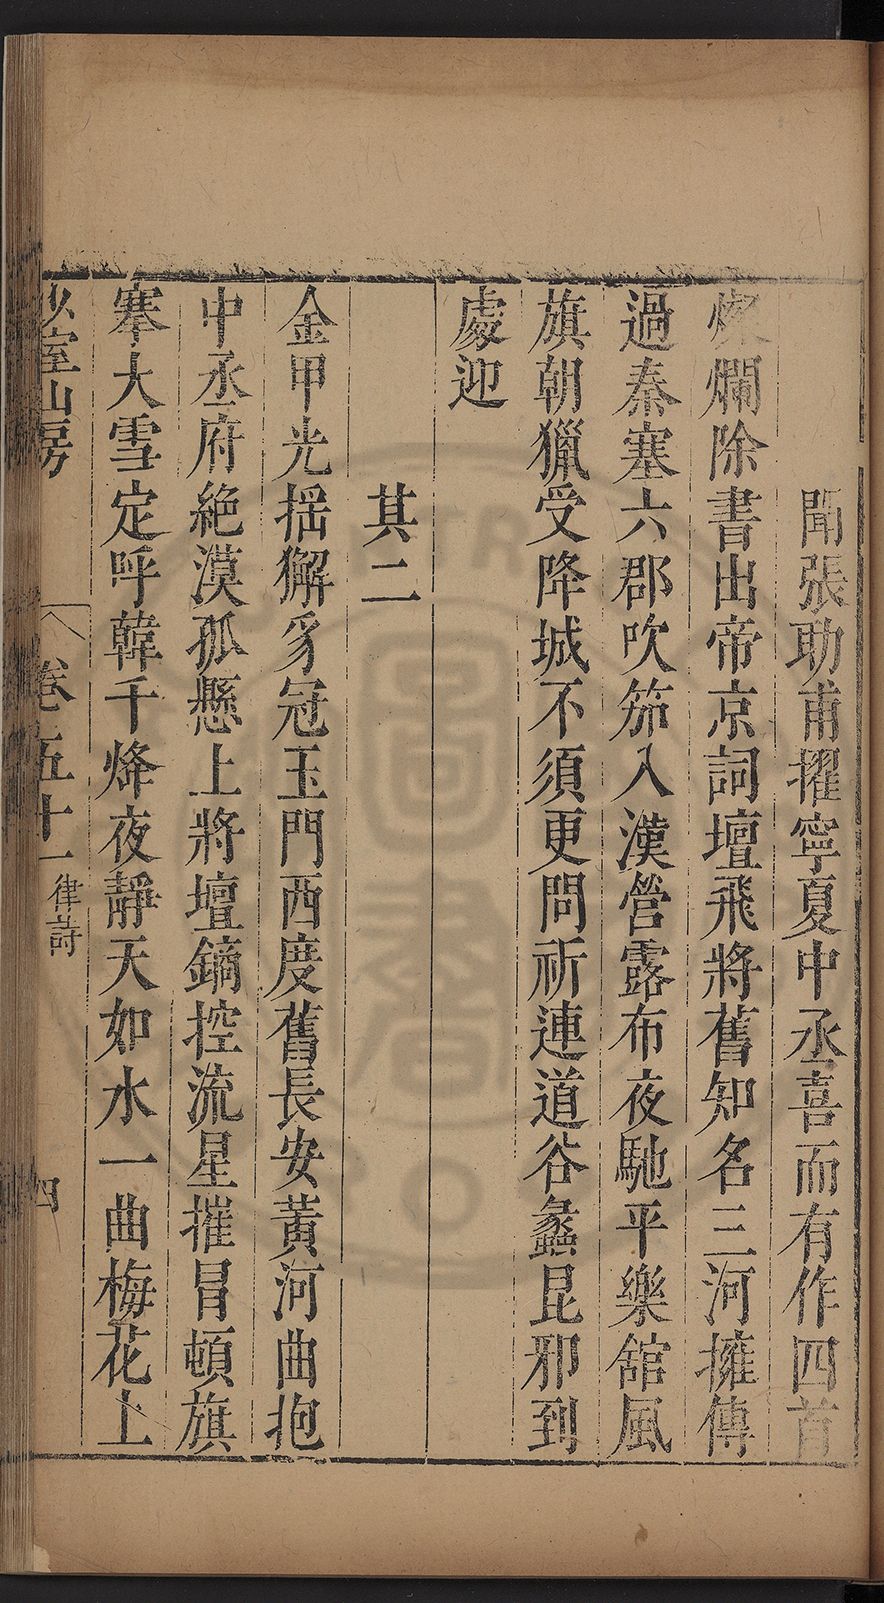 聞張助甫擢寧夏中丞喜而有作四首
燦爛除書出帝京詞壇飛將舊知名三河擁傳
過秦塞六郡吹笳入漢營露布夜馳平樂舘風
旗朝獵受降城不須更問祈連道谷蠡昆邪到
處迎
其二
金甲光揺獬豸冠玉門西度舊長安黃河曲抱
中丞府絶漠孤懸上將壇鏑控流星摧冒頓旗
搴大雪定呼韓千烽夜靜天如水一曲梅花上
少室山房
卷五十一
律詩
四